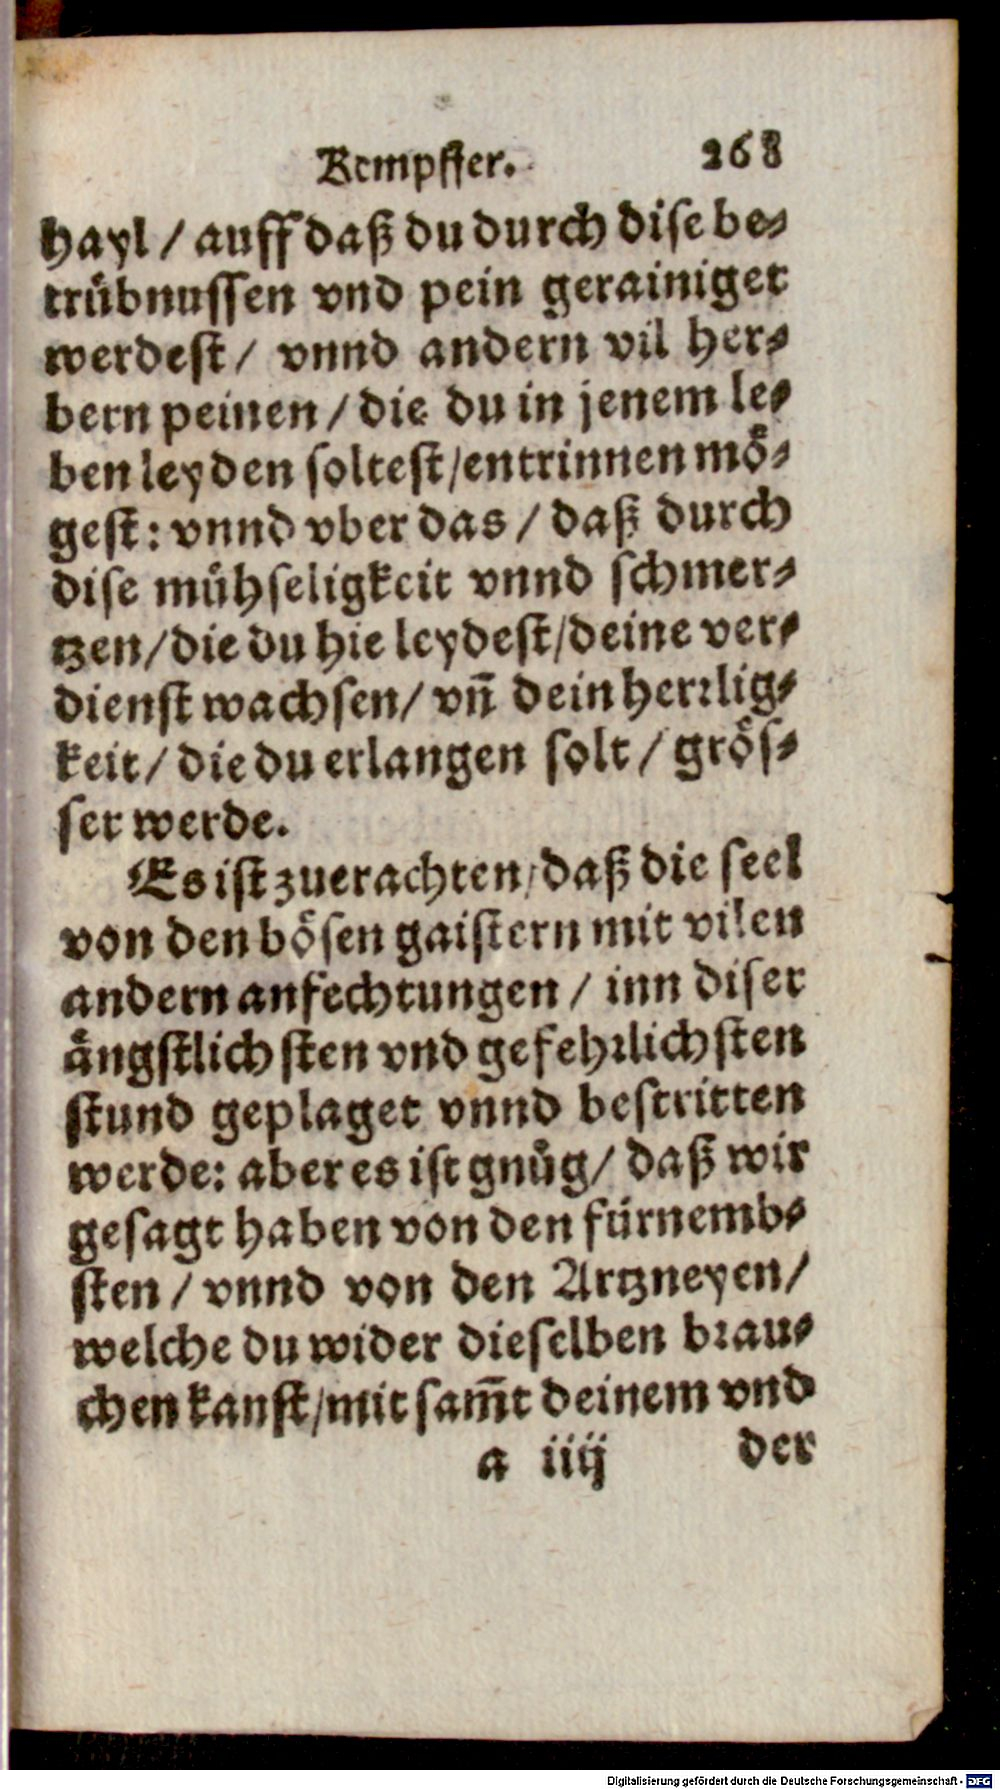 Kempffer. 268
hayl / auff daß du durch dise be-
trübnussen vnd pein gerainiget
werdest / vnnd andern vil her-
bern peinen / die du in jenem le-
ben leyden soltest / entrinnen mö-
gest: vnnd vber das / daß durch
dise mühseligkeit vnnd schmer-
tzen / die du hie leydest / deine ver-
dienst wachsen / vñ dein herrlig-
keit / die du erlangen solt / grös-
ser werde.
Es ist zuerachten / daß die seel
von den bösen gaistern mit vilen
andern anfechtungen / inn diser
ängstlichsten vnd gefehrlichsten
stund geplaget vnnd bestritten
werde: aber es ist gnůg / daß wir
gesagt haben von den fürnemb-
sten / vnnd von den Artzneyen /
welche du wider dieselben brau-
chen kanst / mit sam̃t deinem vnd
a iiij der
Digitalisierung gefördert durch die Deutsche Forschungsgemeinschaft - DFG